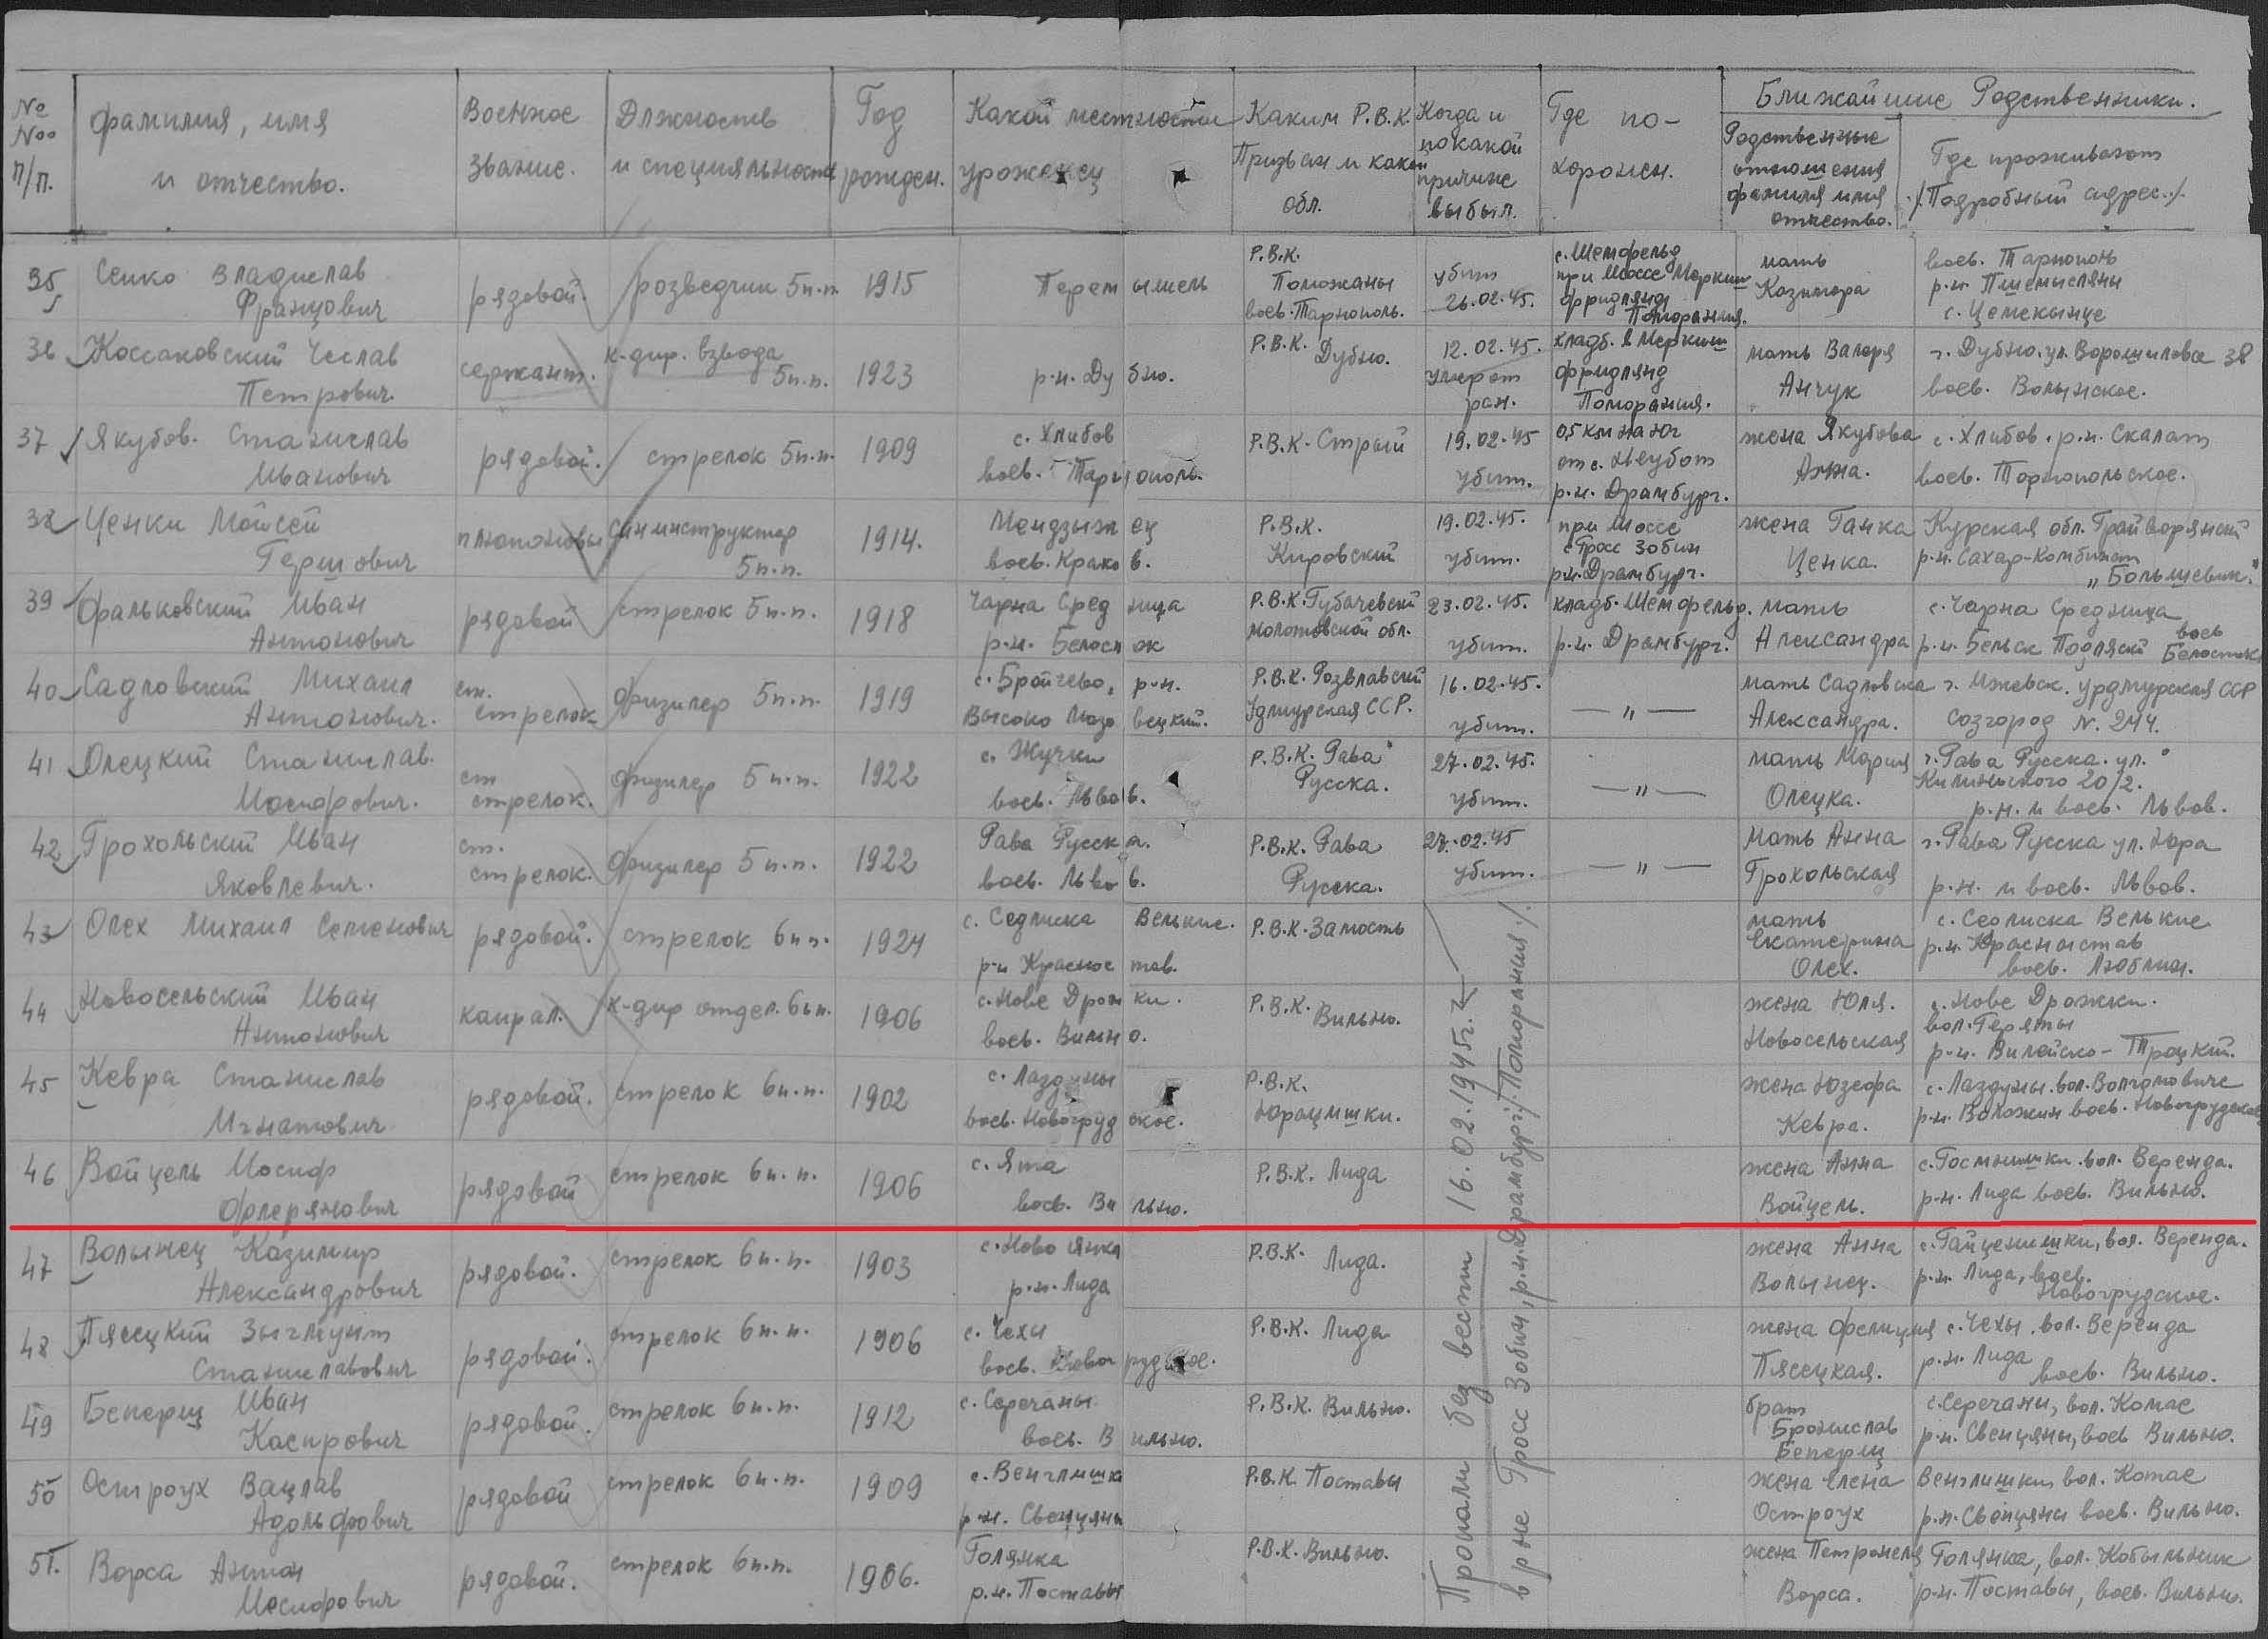 № №оо п/п.
Фамилия, имя и отчество.
Военное звание.
Должность и специальность
Год рожден.
Какой местности урожен ец
Каким Р.В.К. Призван и какой обл.
Когда и по какой причине выбыл.
Где по-хоронен.
Ближайшие Родственники.
Родственные отношения фамилия имя отчество.
Где проживают /Подробный адрес./
35 Сенко Владислав Францович рядовой. розведчик 5 п.п. 1915 Перемышель Р.В.К. Поможаны воев. Тарнополь. убит 26.02.45. с. Шенфельд при шоссе Меркиш фридлянд Поморания. мать Казимора воев. Тарнополь р-н. Пшемысляны с. Цемекынце
36 Коссаковский Чеслав Петрович. сержант. к-дир. взвода 5 п.п. 1923 р-н. Дубно. Р.В.К. Дубно. 12.02.45. умер от ран. кладб. в Меркиш фридлянд Поморания. мать Валеря Анчук г. Дубно. ул. Ворошилова 38 воев. Волынское.
37 Якубов. Станислав Иванович рядовой. стрелок 5 п.п. 1909 с. Хлибов воев. Тарнополь. Р.В.К. Стрый 19.02.45 убит. 0,5 км на юг от с. Неубот р-н. Драмбург. жена Якубова Анна. с. Хлибов. р-н. Скалат воев. Торнопольское.
38 Ценки Мойсей Гершович плютоновы санинструктор 5 п.п. 1914. Мендзыжец воев. Краков. Р.В.К. Кировский 19.02.45. убит. при шоссе с Гросс Зобин р-н. Драмбург. жена Ганка Ценка. Курская обл. Грайворянский р-н. Сахар-Комбинат „Большевик."
39 Фральковский Иван Антонович рядовой стрелок 5 п.п. 1918 Чарна Средница р-н. Белосток Р.В.К. Губачевский Молотовской обл. 23.02.45. убит. кладб. Шенфельд. р-н. Драмбург. мать Александра с. Чарна Средница р-н. Бельск Подляский воев Белосток
40 Садловский Михаил Антонович. ст. стрелок физилер 5 п.п. 1919 с. Бройчево, р-н. Высоко Мазовецкий. Р.В.К. Розвлавский Удмурская ССР. 16.02.45. убит. — " — мать Садловска Александра. г. Ижевск. Урдмурская ССР созгород N. 244.
41 Олецкий Станислав. Иосифович. ст стрелок. физилер 5 п.п. 1922 с. Жучки воев. Львов. Р.В.К. Рава Русска. 27.02.45. убит. — " — мать Мария Олецка. г. Рава Русска. ул. Килиньского 20/2. р-н. и воев. Львов.
42 Грохольский Иван Яковлевич. ст. стрелок. физилер 5 п.п. 1922 Рава Русска. воев. Львов. Р.В.К. Рава Русска. 27.02.45 убит. — " — мать Анна Грохольская г. Рава Русска ул. Юра р-н. и воев. Львов.
43 Олех Михаил Семенович рядовой. стрелок 6 п.п. 1924 с. Седлиска Велькие. р-н Красностав. Р.В.К. Замость мать Екатерина Олех. с. Седлиска Велькие р-н. Красныстав воев. Люблин.
44 Новосельский Иван Антонович капрал. к-дир отдел. 6 п.п. 1906 с. Нове Дрожки. воев. Вильно. Р.В.К. Вильно. жена Юля. Новосельская с. Нове Дрожки. вол. Геряты р-н. Вилейско-Троцкий.
45 Кевра Станислав Игнатович рядовой. стрелок 6 п.п. 1902 с. Лаздуны воев. Новогрудское. Р.В.К. Юрацишки. жена Юзефа Кевра. с. Лаздуны. вол. Волголовиче р-н. Воложин воев. Новогрудское
46 Войцель Иосиф Флерянович рядовой стрелок 6 п.п. 1906 с. Ята воев. Вильно. Р.В.К. Лида жена Анна Войцель. с. Госткишки. вол. Веренда. р-н. Лида воев. Вильно.
47 Волынец Казимир Александрович рядовой. стрелок 6 п.п. 1903 с. Ново Янка р-н. Лида Р.В.К. Лида. жена Анна Волынец. с. Гайценишки, вол. Веренда. р-н. Лида, воев. Новогрудское.
48 Пясецкий Зыгмунт Станиславович рядовой. стрелок 6 п.п. 1906 с. Чехы воев. Новогрудское. Р.В.К. Лида жена Фелиция Пясецкая. с. Чехы. вол. Веренда р-н. Лида воев. Вильно.
49 Беперщ Иван Каспрович рядовой. стрелок 6 п.п. 1912 с. Серечаны. воев. Вильно. Р.В.К. Вильно. брат Бронислав Беперщ с. Серечаны, вол. Комае р-н. Свенцяны, воев Вильно.
50 Остроух Вацлав Адольфович рядовой стрелок 6 п.п. 1909 с. Венглишка р-н. Свенцяны Р.В.К. Поставы жена Елена Остроух Венглишки, вол. Комае р-н. Свенцяны воев. Вильно.
51. Ворса Антон Иосифович рядовой. стрелок 6 п.п. 1906. Голянка р-н. Поставы Р.В.К. Вильно. жена Петронеля Ворса. Голянка, вол. Кобыльник р-н. Поставы, воев. Вильно.
Пропали без вести 16.02.1945 г.
в р-не Гросс Зобин, р-н. Драмбург /Поморания/.